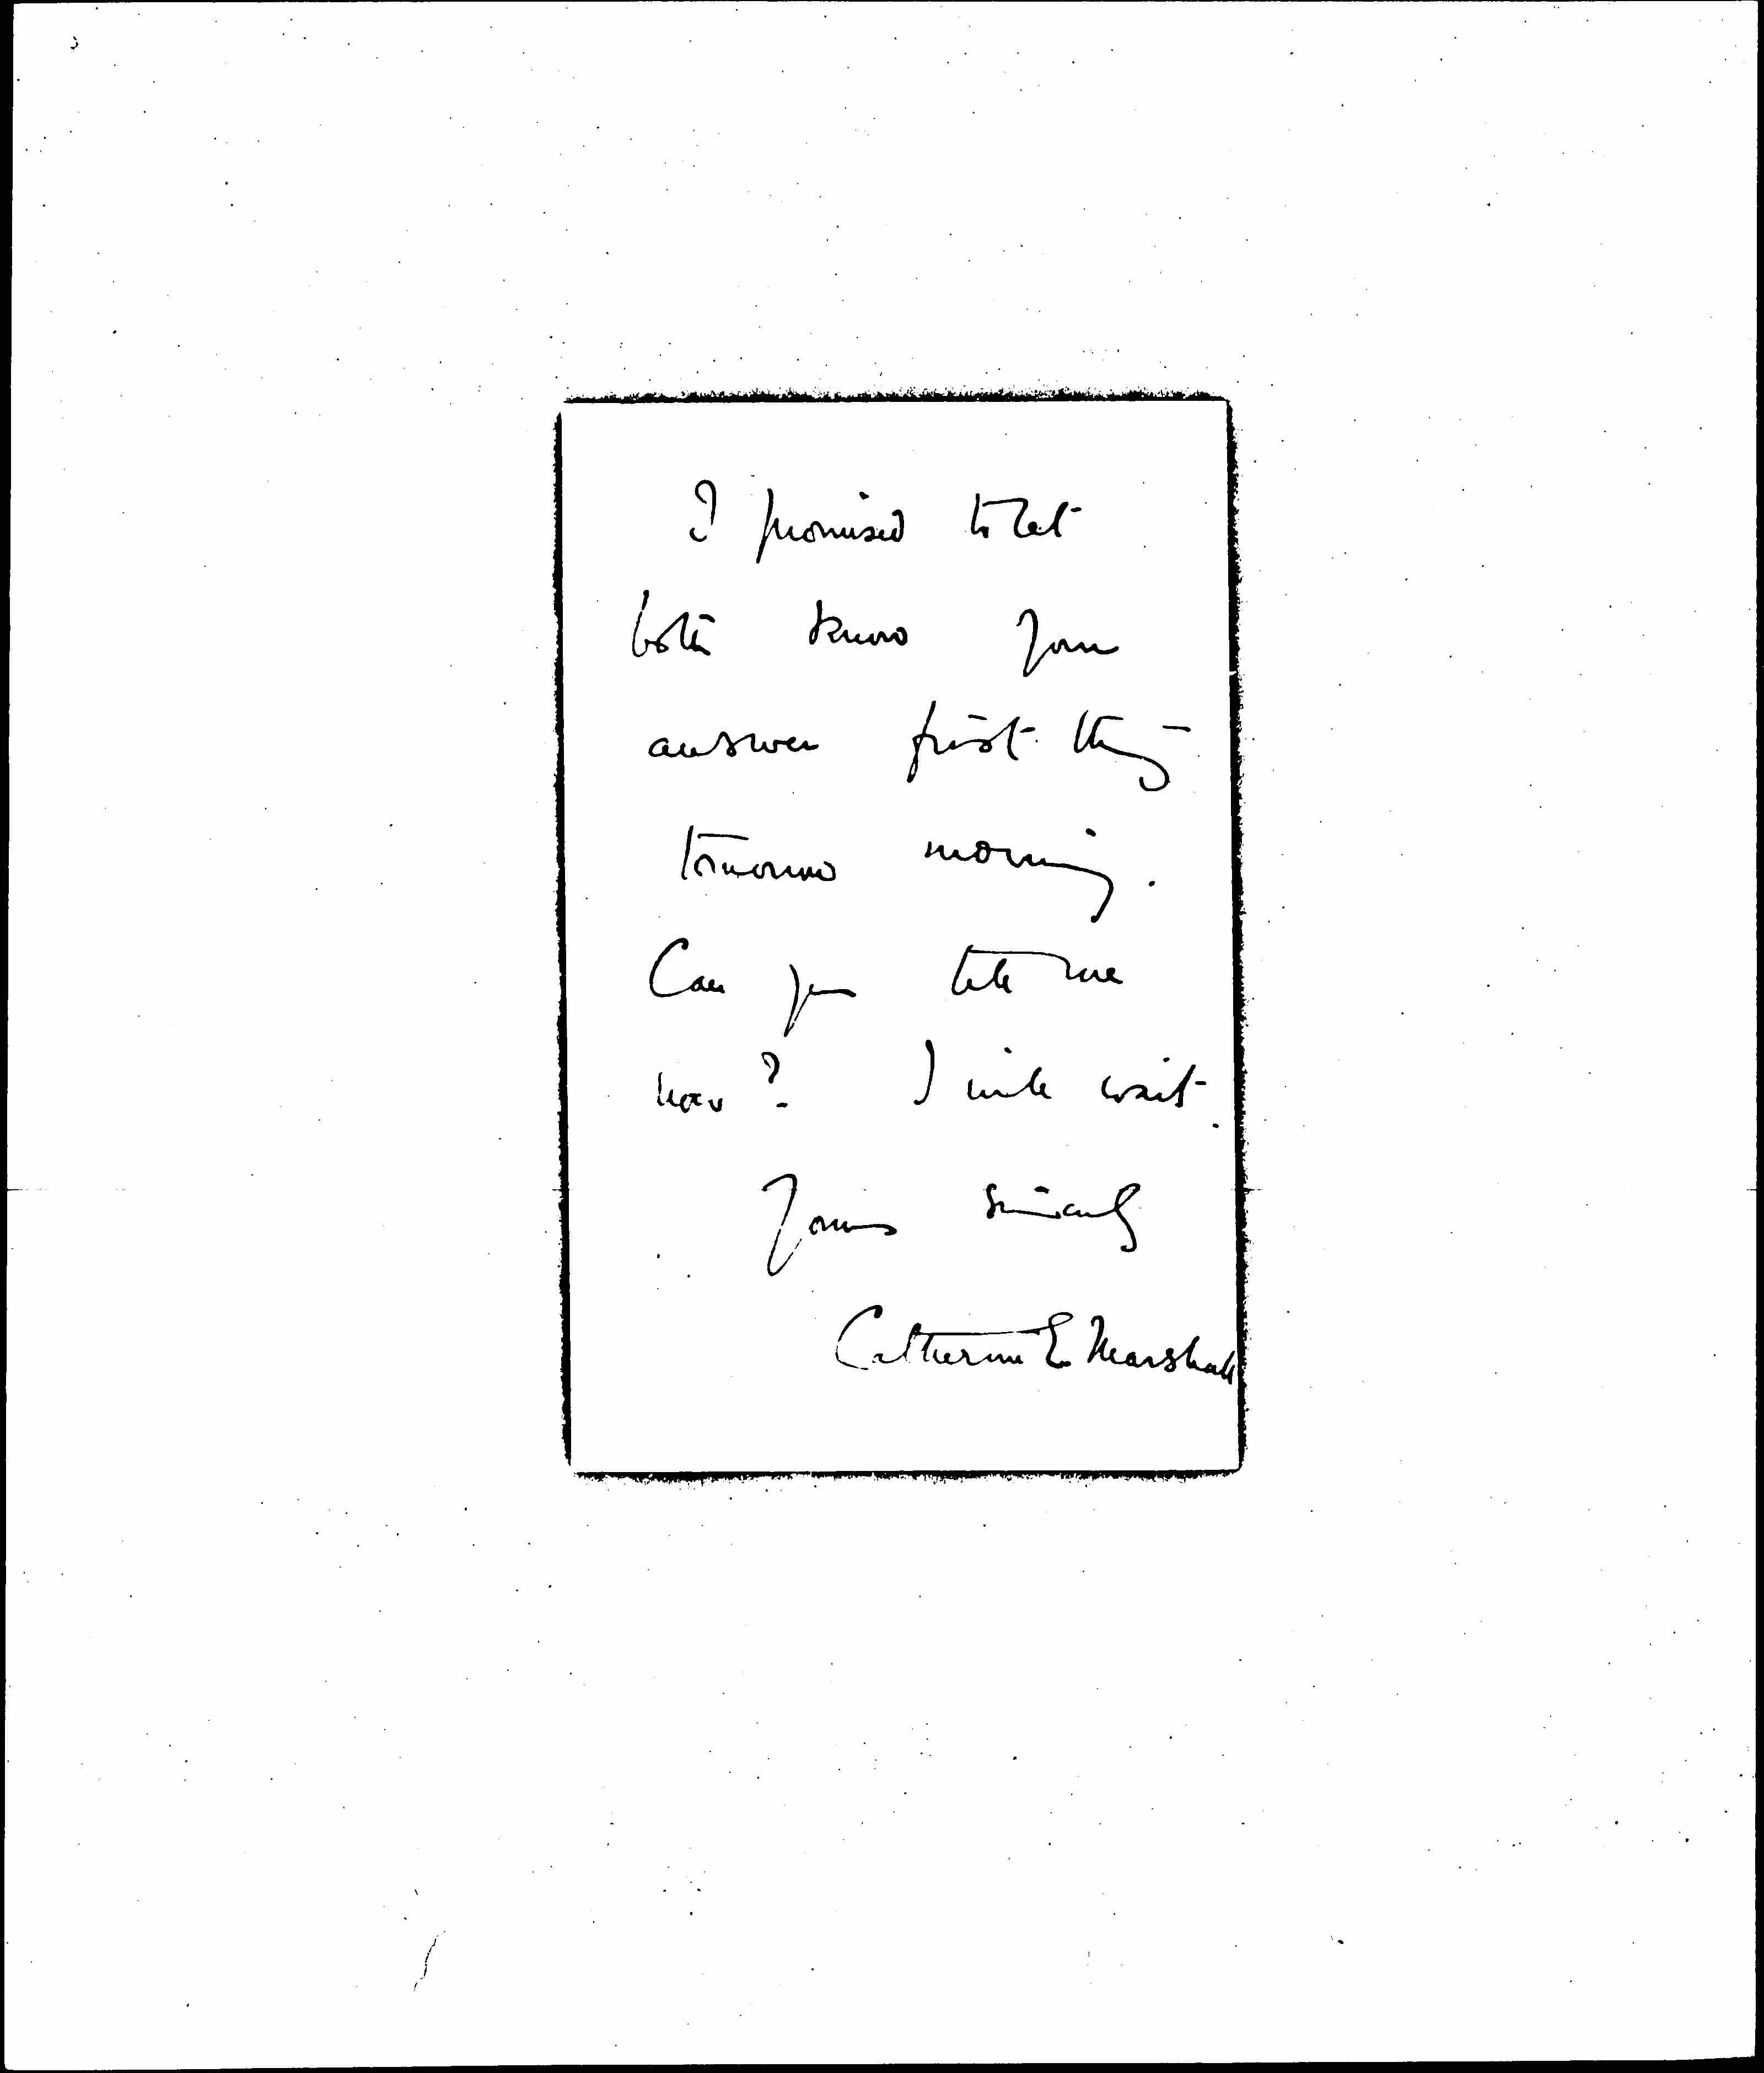 I promised to let
both know your
answer first thing
tomorrow morning.
Can you tell me
now? I will wait.
Yours sincerely
Catherine E Marshall